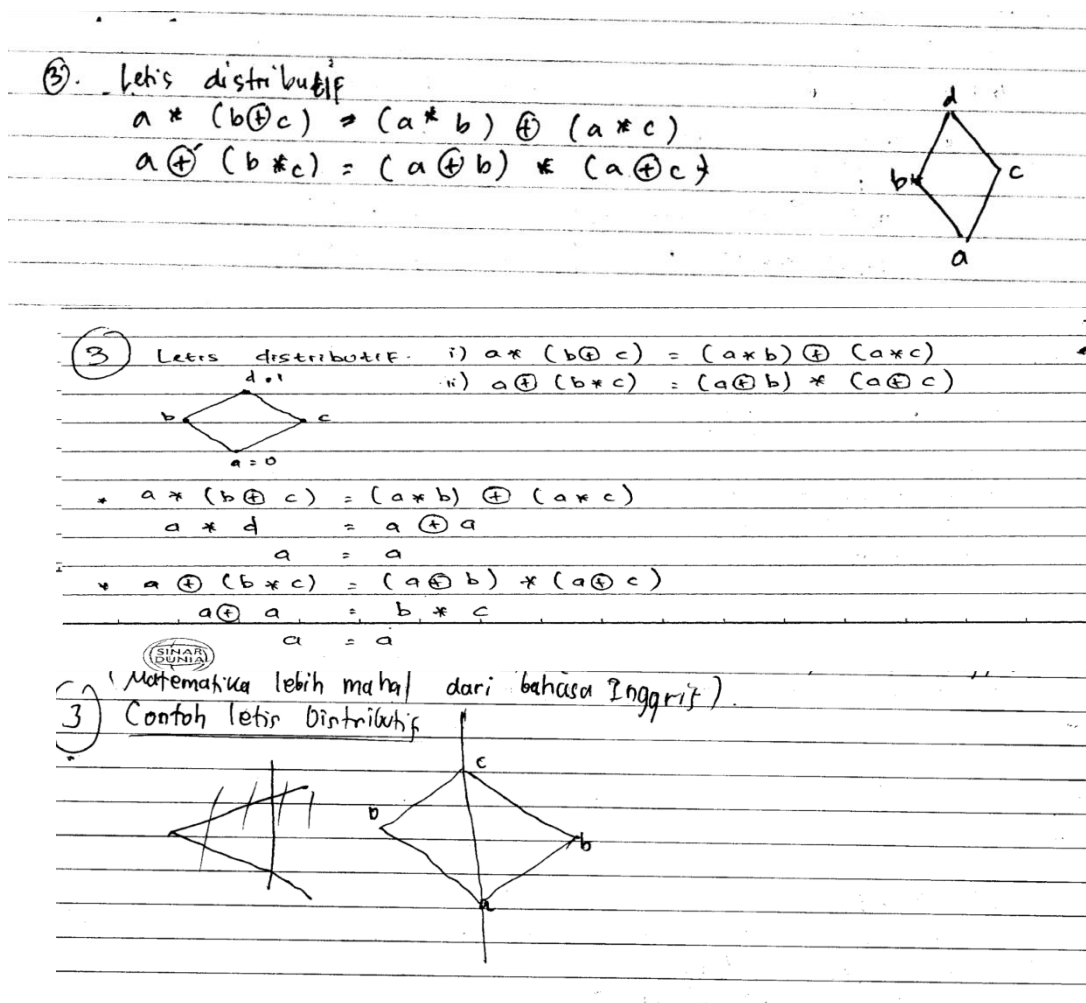 ③. Letis distributif
a * (b⊕c) = (a * b) ⊕ (a * c)
a ⊕ (b *c) = (a ⊕ b) * (a ⊕ c)
d
b
c
a
③ Letis distributif. i) a * (b ⊕ c) = (a * b) ⊕ (a * c)
ii) a ⊕ (b * c) = (a ⊕ b) * (a ⊕ c)
d = 1
b
c
a = 0
* a * (b ⊕ c) = (a * b) ⊕ (a * c)
a * d = a ⊕ a
a = a
* a ⊕ (b * c) = (a ⊕ b) * (a ⊕ c)
a ⊕ a = b * c
a = a
SINAR DUNIA
(Matematika lebih mahal dari bahasa Inggris).
③ Contoh letis Distributif
c
b
a